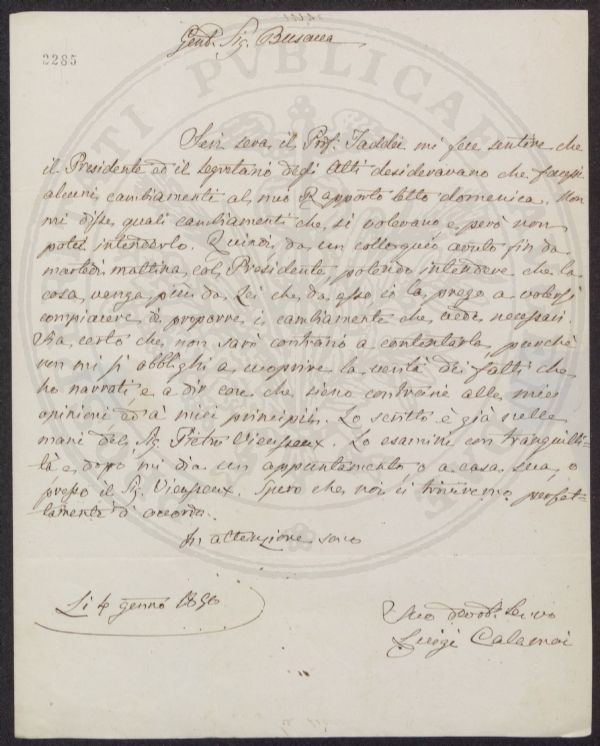 Gent. Sig. Busacca
2285
Ieri sera il Prof. Taddei mi fece sentire che
il Presidente ed il segretario degli Atti desideravano che facessi
alcuni cambiamenti al mio Rapporto letto domenica. Non
mi disse quali cambiamenti che si volevano e però non
potei intenderlo. Quindi da un colloquio avuto fin da
martedì mattina col Presidente potendo intendere che la
cosa venga più da Lei che da esso io la prego a volersi
compiacere di proporre i cambiamenti che crede necessari.
Sia certo che non sarò contrario a contentarla, purchè
non mi si obblighi a ricoprire la verità dei fatti che
ho narrati e a dir cose che sieno contrarie alle mie
opinioni ed a' miei principii. Lo scritto è già nelle
mani del Sig. Pietro Vieusseux. Lo esamini con tranquilli-
tà e dopo mi dia un appuntamento o a casa sua, o
presso il Sig. Vieusseux. Spero che noi ci troveremo perfet-
tamente d'accordo.
In attenzione sono
Li 4 genn° 1850
Suo devot. Servo
Luigi Calamai